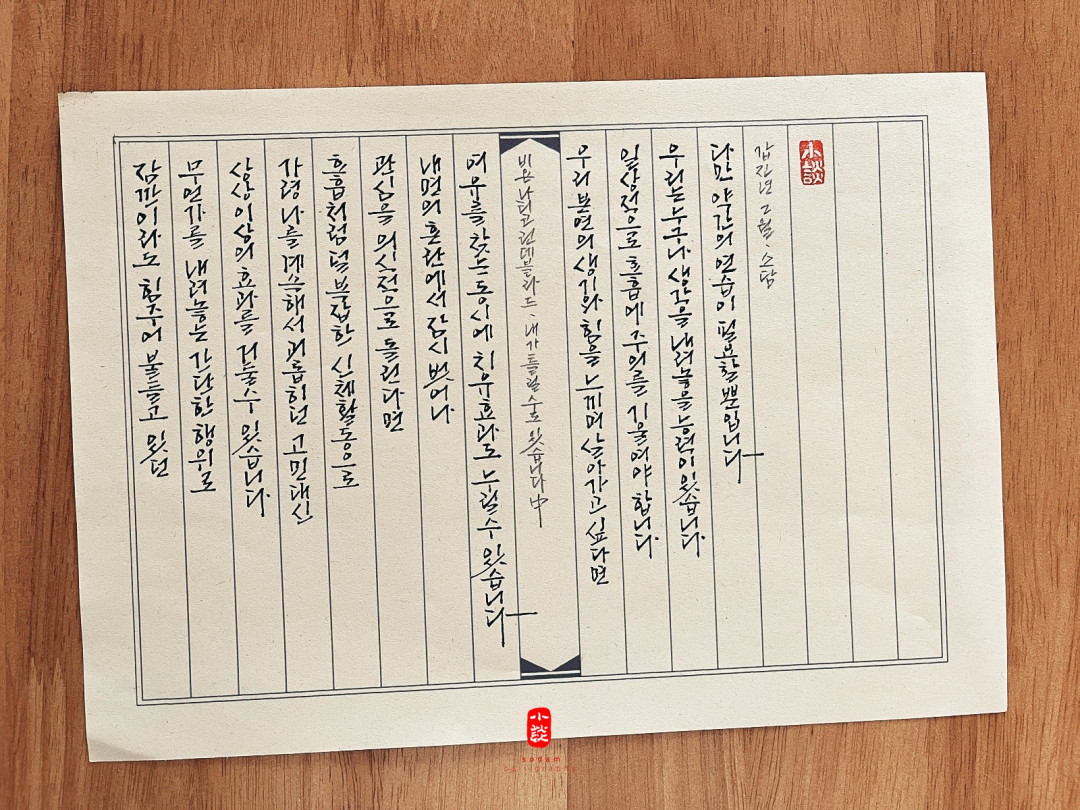 잠깐이라도 힘주어 붙들고 있던
무언가를 내려놓는 간단한 행위로
상상 이상의 효과를 거둘 수 있습니다.
가령 나를 계속해서 괴롭히던 고민 대신
호흡처럼 덜 복잡한 신체 활동으로
관심을 의식적으로 돌린다면
내면의 혼란에서 잠시 벗어나
여유를 찾는 동시에 치유 효과도 누릴 수 있습니다
비욘 나티코 린데블라드, 내가 틀릴 수도 있습니다 中
우리 본연의 생기와 힘을 느끼며 살아가고 싶다면
일상적으로 호흡에 주의를 기울여야 합니다.
우리는 누구나 생각을 내려놓을 능력이 있습니다.
다만 약간의 연습이 필요할 뿐입니다
갑진년 2월, 소담
小談
小談
sodam
calligraphy